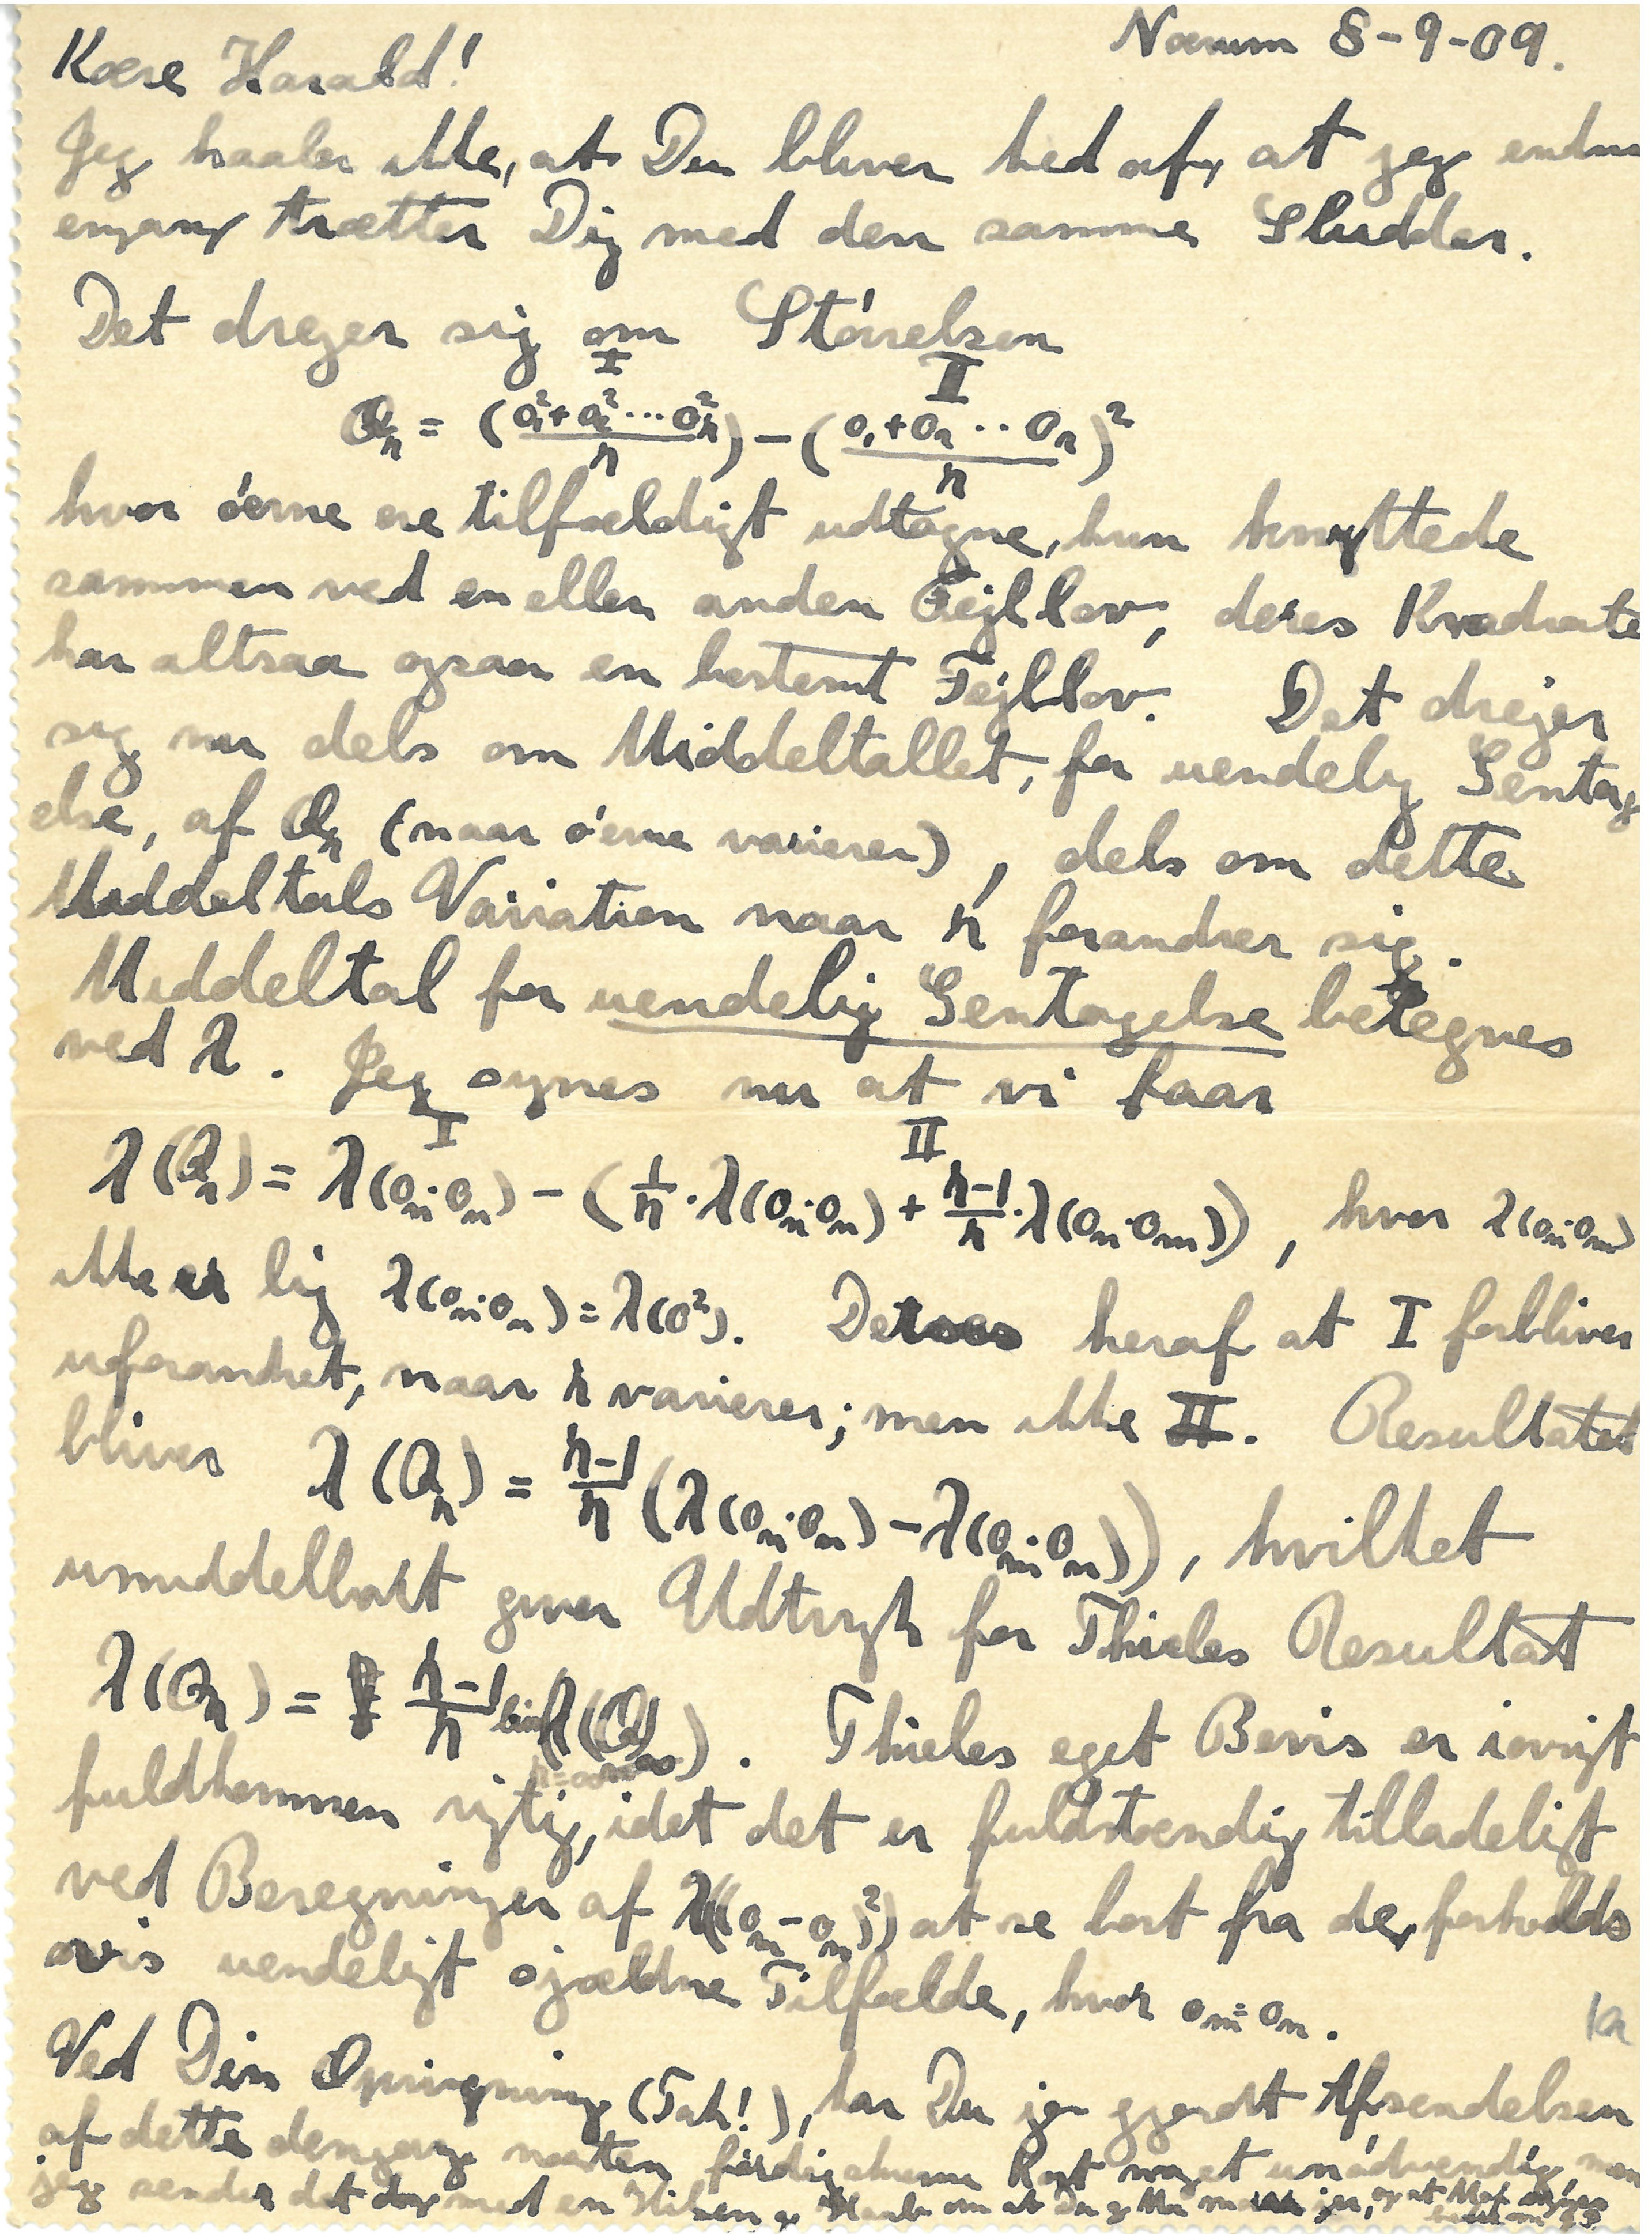 Nærum 8-9-09.
Kære Harald!
Jeg haaber ikke, at Du bliver ked af, at jeg endnu
engang trætter Dig med den samme Sludder.
Det drejer sig om Størrelsen
I II
Qₙ = (o₁²+o₂²...oₙ²/n) - (o₁+o₂..oₙ/n)²
hvor o'erne ere tilfældigt udtagne, kun knyttede
sammen ved en eller anden Fejllov, deres Kvadrate
har altsaa ogsaa en bestemt Fejllov. Det drejer
sig nu dels om Middeltallet, for uendelig Gentag
else, af Qₙ (naar o'erne varierer), dels om dette
Middeltals Variation naar n forandrer sig.
Middeltal for uendelig Gentagelse betegnes
ved λ. Jeg synes nu at vi faar
I II
λ(Qₙ) = λ(oₙ·oₙ) - (1/n·λ(oₙ·oₙ) + n-1/n·λ(oₙ·oₘ)), hvor λ(oₙ·oₘ)
ikke er lig λ(oₙ·oₙ)=λ(o²). Det ses heraf at I forbliver
uforandret, naar n varierer; men ikke II. Resultatet
bliver λ(Qₙ) = n-1/n (λ(oₙ·oₙ) - λ(oₘ·oₙ)), hvilket
umiddelbart giver Udtryk for Thieles Resultat
λ(Qₙ) = n-1/n lim(λ(Q)). Thieles eget Bevis er iøvrigt
n=∞
fuldkommen rigtig, idet det er fuldstændig tilladeligt
ved Beregningen af λ((oₘ-oₙ)²) at se bort fra de, forholds
vis uendeligt sjældne Tilfælde, hvor oₘ=oₙ.
Ved Din Opringning (Tak!), har Du jo gjordt Afsendelsen
af dette dengang næsten færdigskrevne Kort noget unødvendig, men
jeg sender det dog med en Hilsen og Haab om at Du